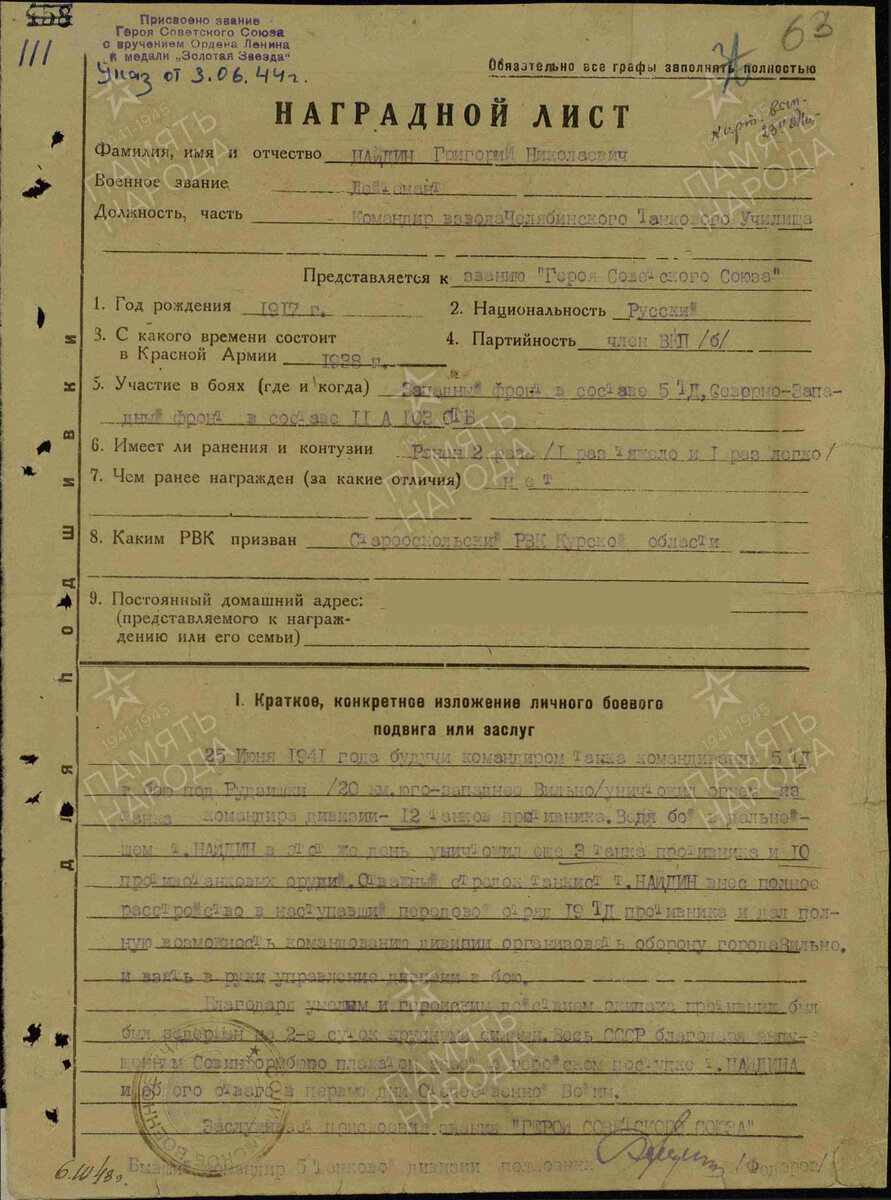 158
III
Присвоено звание
Героя Советского Союза
с вручением Ордена Ленина
и медали „Золотая Звезда"
Указ от 3.06.44г.
63
Обязательно все графы заполнять полностью
НАГРАДНОЙ ЛИСТ
Фамилия, имя и отчество НАЙДИН Григорий Николаевич
Военное звание Лейтенант
Должность, часть Командир взвода Челябинского Танкового Училища
Представляется к званию "Героя Советского Союза"
1. Год рождения 1917 г. 2. Национальность Русский
3. С какого времени состоит
в Красной Армии 1938 г. 4. Партийность член ВКП /б/
5. Участие в боях (где и когда) Западный фронт в составе 5 ТД, Северно-Запа-
дный фронт в составе II А 103 ОТБ
6. Имеет ли ранения и контузии Ранен 2 раза /I раз тяжело и I раз легко/
7. Чем ранее награжден (за какие отличия) нет
8. Каким РВК призван Старооскольский РВК Курской области
9. Постоянный домашний адрес:
(представляемого к награж-
дению или его семьи)
для подшивки
I. Краткое, конкретное изложение личного боевого
подвига или заслуг
25 Июня 1941 года будучи командиром танка 5 ТД
в бою под /20 км. юго-западнее Вильно/ уничтожил огнем из
танка командира дивизии- 12 танков противника. Ведя бой в дальней-
шем т. НАЙДИН в этот же день уничтожил еще 3 танка противника и 10
противотанковых орудий. Отважный стрелок танкист т. НАЙДИН внес полное
расстройство в наступавший передовой отряд 19 ТД противника и дал пол-
ную возможность командованию дивизии организовать оборону города Вильно.
и взять в руки управление дивизии в бою.
Благодаря умелым и геройским действием экипажа противник был
был задержан на 2-е суток крупными силами. Весь СССР благодаря выпу-
щенным Совинформбюро плакатом знает о геройском поступке т. НАЙДИНА
и его отваге в первые дни Отечественной Войны.
Заслуживает присвоения звания "ГЕРОЙ СОВЕТСКОГО СОЮЗА"
Бывший командир 5 Танковой дивизии полковник /Федоров/
ПАМЯТЬ НАРОДА
1941-1945